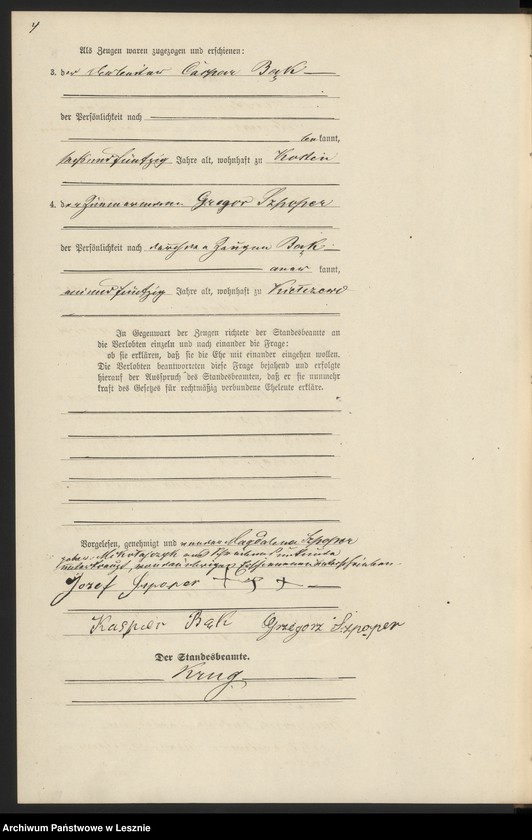 4
Als Zeugen waren zugezogen und erschienen:
3. der Caspar Bąk
der Persönlichkeit nach
bekannt,
fünfzig Jahre alt, wohnhaft zu
4. der Zimmermann Gregor Szpoper
der Persönlichkeit nach durch den Zeugen Bąk
anerkannt,
Jahre alt, wohnhaft zu
In Gegenwart der Zeugen richtete der Standesbeamte an
die Verlobten einzeln und nach einander die Frage:
ob sie erklären, daß sie die Ehe mit einander eingehen wollen.
Die Verlobten beantworteten diese Frage bejahend und erfolgte
hierauf der Ausspruch des Standesbeamten, daß er sie nunmehr
kraft des Gesetzes für rechtmäßig verbundene Eheleute erkläre.
Vorgelesen, genehmigt und von der Magdalena Szpoper
geborenen Mikołajczyk
von den übrigen Erschienenen unterschrieben
Jozef Szpoper +++
Kasper Bąk Grzegorz Szpoper
Der Standesbeamte.
Krug
Archiwum Państwowe w Lesznie